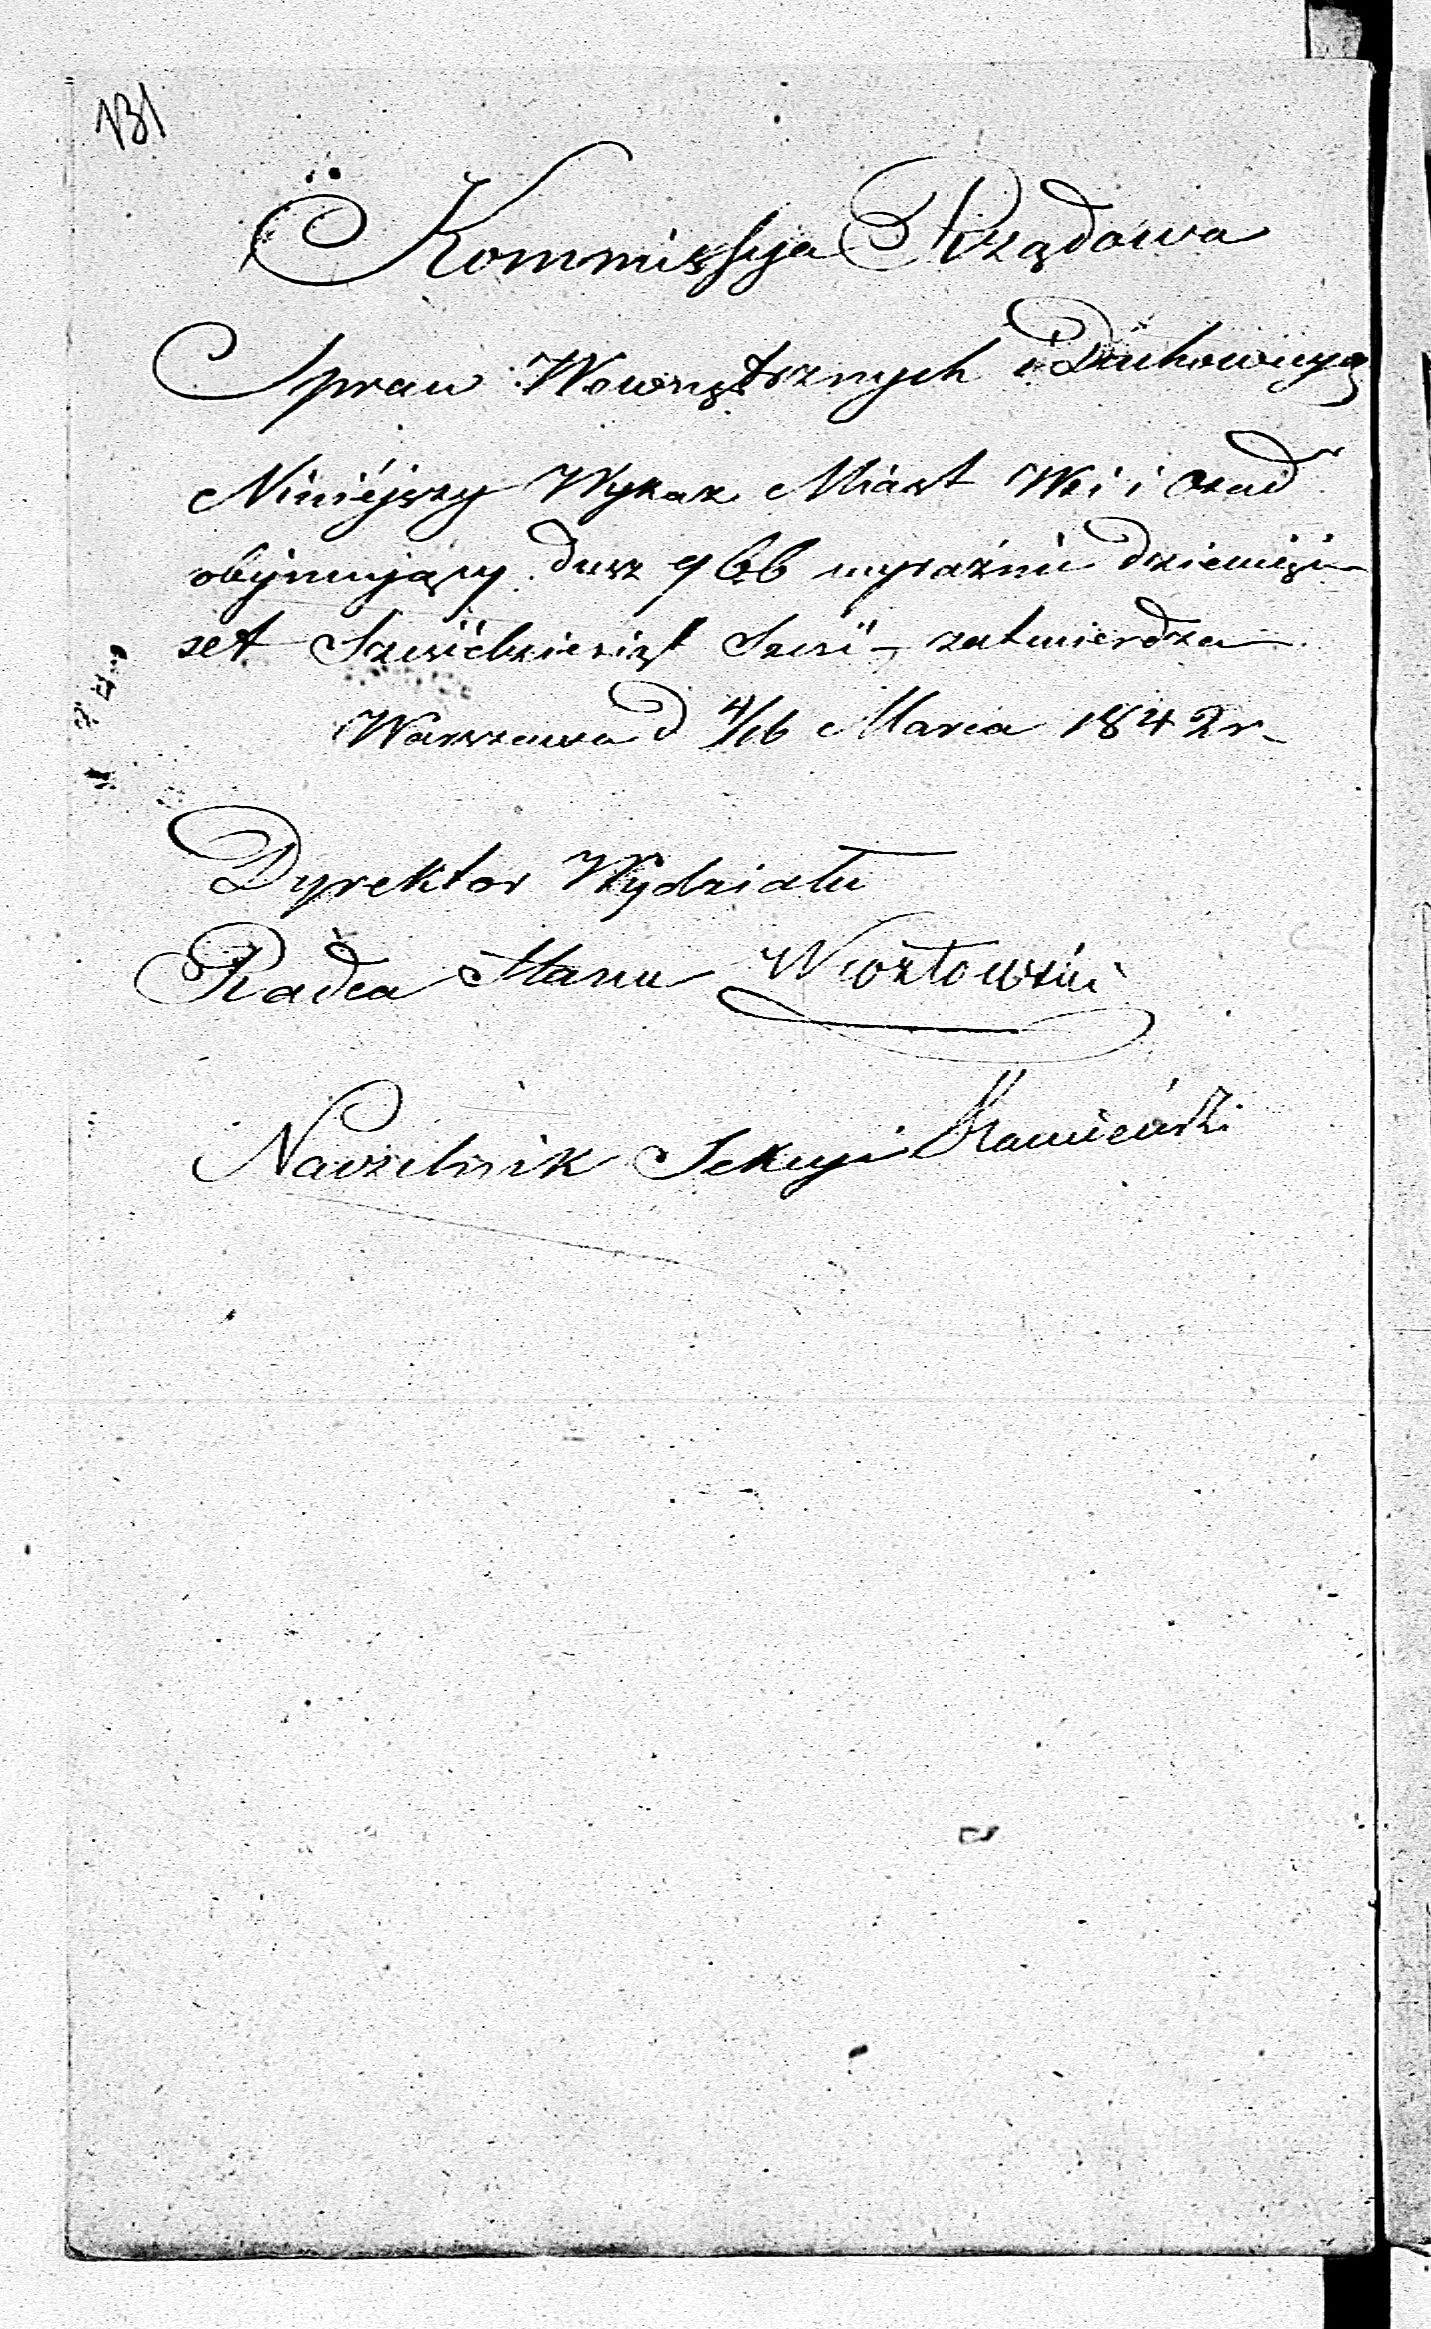 131
Kommissya Rządowa
Spraw Wewnętrznych i Duchownych
Niniéjszy Wykaz Miast Wsi i Osad
obÿmujący dusz 966 wyraźnie dziewięć
set Sześćdziesiąt Sześć – zatwierdza
Warszawa d 4/16 Marca 1842 r.
Dyrektor Wydziału
Radca Stanu
Naczelnik Sekcyi Kamieński